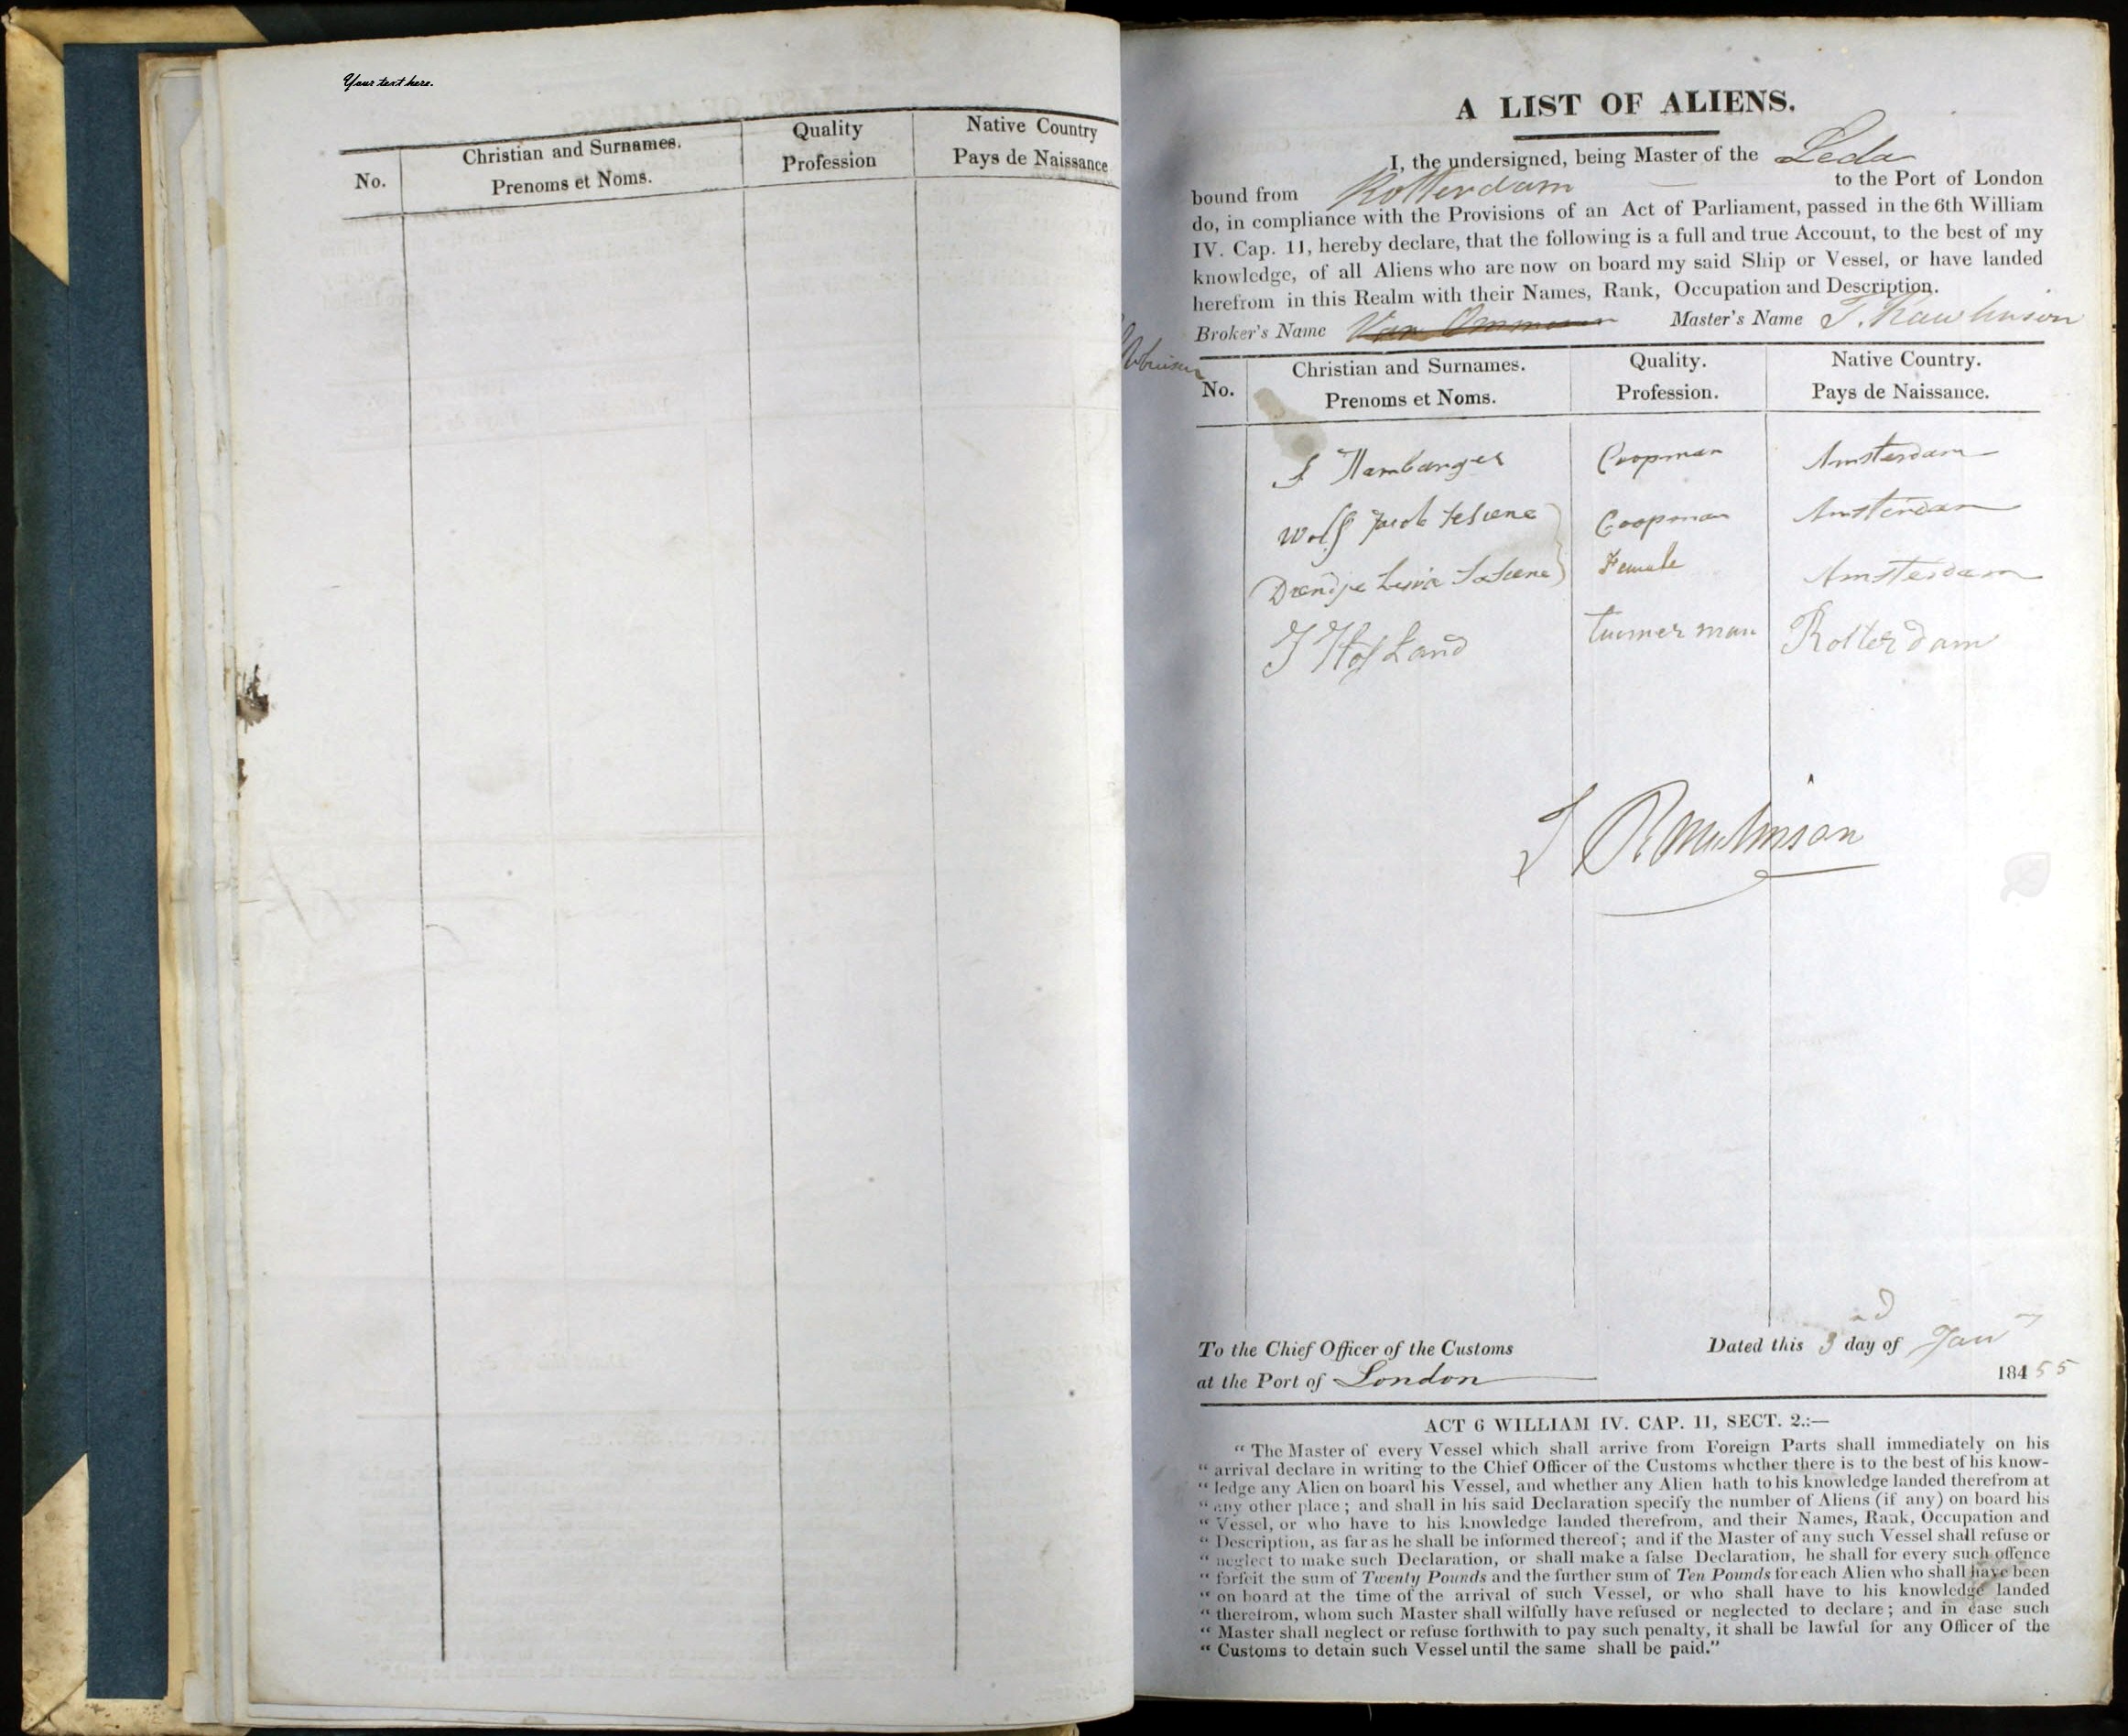 Your text here.
No.
Christian and Surnames.
Prenoms et Noms.
Quality
Profession
Native Country
Pays de Naissance
A LIST OF ALIENS.
I, the undersigned, being Master of the Leda
bound from Rotterdam to the Port of London
do, in compliance with the Provisions of an Act of Parliament, passed in the 6th William
IV. Cap. 11, hereby declare, that the following is a full and true Account, to the best of my
knowledge, of all Aliens who are now on board my said Ship or Vessel, or have landed
herefrom in this Realm with their Names, Rank, Occupation and Description.
Broker's Name Van Ommeren Master's Name T. Rawlinson
No.
Christian and Surnames.
Prenoms et Noms.
Quality.
Profession.
Native Country.
Pays de Naissance.
Coopman Amsterdam
Wolf Jacob Coopman Amsterdam
Female Amsterdam
Hofland Timmerman Rotterdam
Rawlinson
To the Chief Officer of the Customs
at the Port of London
Dated this 3 day of Jany
184 55
ACT 6 WILLIAM IV. CAP. 11, SECT. 2.:—
"The Master of every Vessel which shall arrive from Foreign Parts shall immediately on his
"arrival declare in writing to the Chief Officer of the Customs whether there is to the best of his know-
"ledge any Alien on board his Vessel, and whether any Alien hath to his knowledge landed therefrom at
"any other place; and shall in his said Declaration specify the number of Aliens (if any) on board his
"Vessel, or who have to his knowledge landed therefrom, and their Names, Rank, Occupation and
"Description, as far as he shall be informed thereof; and if the Master of any such Vessel shall refuse or
"neglect to make such Declaration, or shall make a false Declaration, he shall for every such offence
"forfeit the sum of Twenty Pounds and the further sum of Ten Pounds for each Alien who shall have been
"on board at the time of the arrival of such Vessel, or who shall have to his knowledge landed
"therefrom, whom such Master shall wilfully have refused or neglected to declare; and in case such
"Master shall neglect or refuse forthwith to pay such penalty, it shall be lawful for any Officer of the
"Customs to detain such Vessel until the same shall be paid."